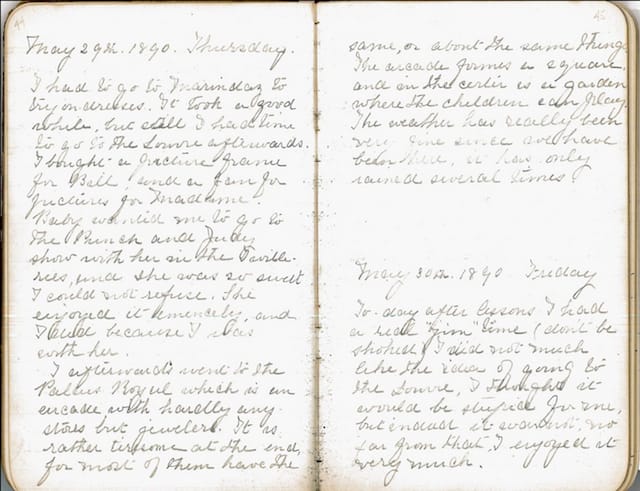 44
May 29th. 1890. Thursday.
I had to go to Marindaz to
try on dresses. It took a good
while, but still I had time
to go to the Louvre afterwards.
I bought a picture frame
for Bell, and a fan for
pictures for Madame.
Baby wanted me to go to
the Punch and Judy
show with her in the Tuille-
ries, and she was so sweet
I could not refuse. She
enjoyed it emencely, and
I did because I was
with her.
I afterwards went to the
Palais Royal which is an
arcade with hardly any
stores but jewelers. It is
rather tirsome at the end,
for most of them have the
45
same, or about the same things
The arcade formes a square,
and in the center is a garden
where the children can play.
The weather has really been
very fine since we have
been here, it has only
rained several times.
May 30th. 1890 Friday
To-day after lessons I had
a real "gim" time (don't be
shoked) I did not much
like the idea of going to
the Louvre, I thought it
would be stupid for me,
but indeed it was not, no
far from that, I enjoyed it
very much.